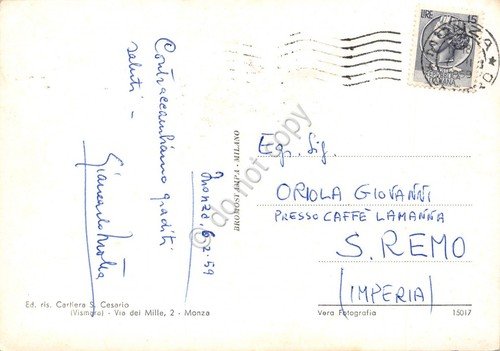 LIRE 15
MONZA
Contraccambiamo graditi
saluti -
Giancarlo
Monza, 6-2-59
do not copy
Egr. Sig.
ORIOLA GIOVANNI
PRESSO CAFFÈ LAMANNA
S. REMO
(IMPERIA)
Ed. ris. Cartiera S. Cesario
(Vismara) - Via dei Mille, 2 - Monza
Vera Fotografia
15017